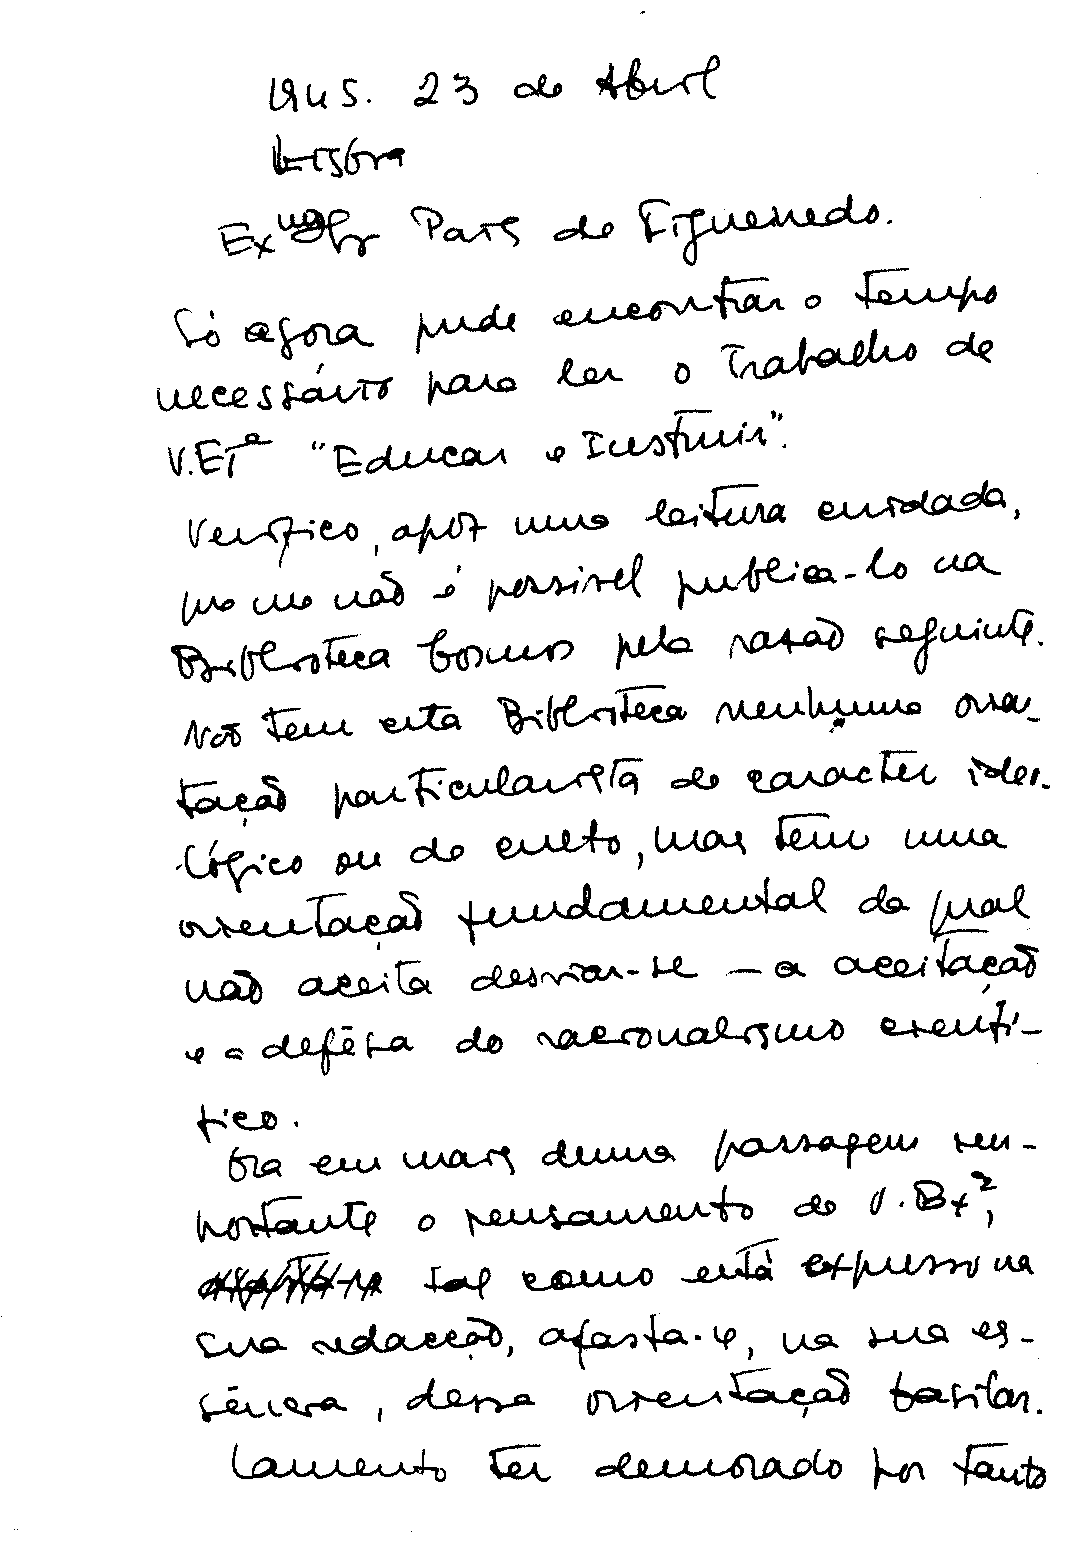 1945. 23 de Abril
Lisboa
Ex.mo Sr Pais de Figueiredo.
Só agora pude encontrar o tempo
necessário para ler o trabalho de
V. Exª "Educar e Instruir".
Verifico, após uma leitura cuidada,
que me não é possivel publica-lo na
Biblioteca Cosmos pela razão seguinte.
Não tem esta Biblioteca nenhuma orien-
tação particularista de caracter ideo-
lógico ou de culto, mas tem uma
orientação fundamental da qual
não aceita desviar-se — a aceitação
e a defêsa do racionalismo cientí-
fico.
Ora em mais duma passagem
o pensamento de V. Exª,
tal como está expresso na
sua redacção, afasta-se, na sua es-
sência, dessa orientação basilar.
Lamento ter demorado por tanto